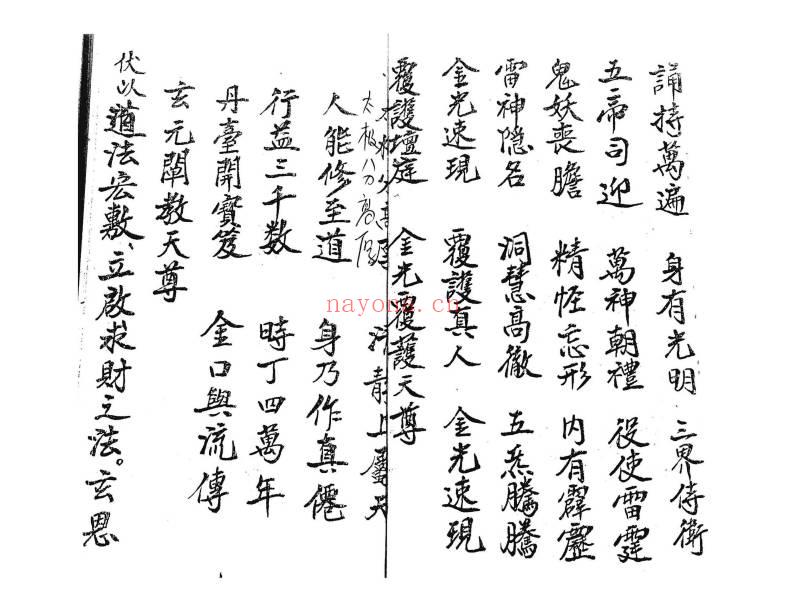 誦持萬遍 身有光明 三界侍衛
五帝司迎 萬神朝禮 役使雷霆
鬼妖喪膽 精恠忘形 內有霹靂
雷神隐名 洞慧高徹 五炁騰騰
金光速現 覆護真人 金光速現
覆護壇庭 金光覆護天尊
太極 上
人能修至道 身乃作真僊
行益三千数 時丁四萬年
丹臺開寶笈 金口與流傳
玄元闡教天尊
伏以道法宏敷、立啟求財之法。玄恩
nayona.cn